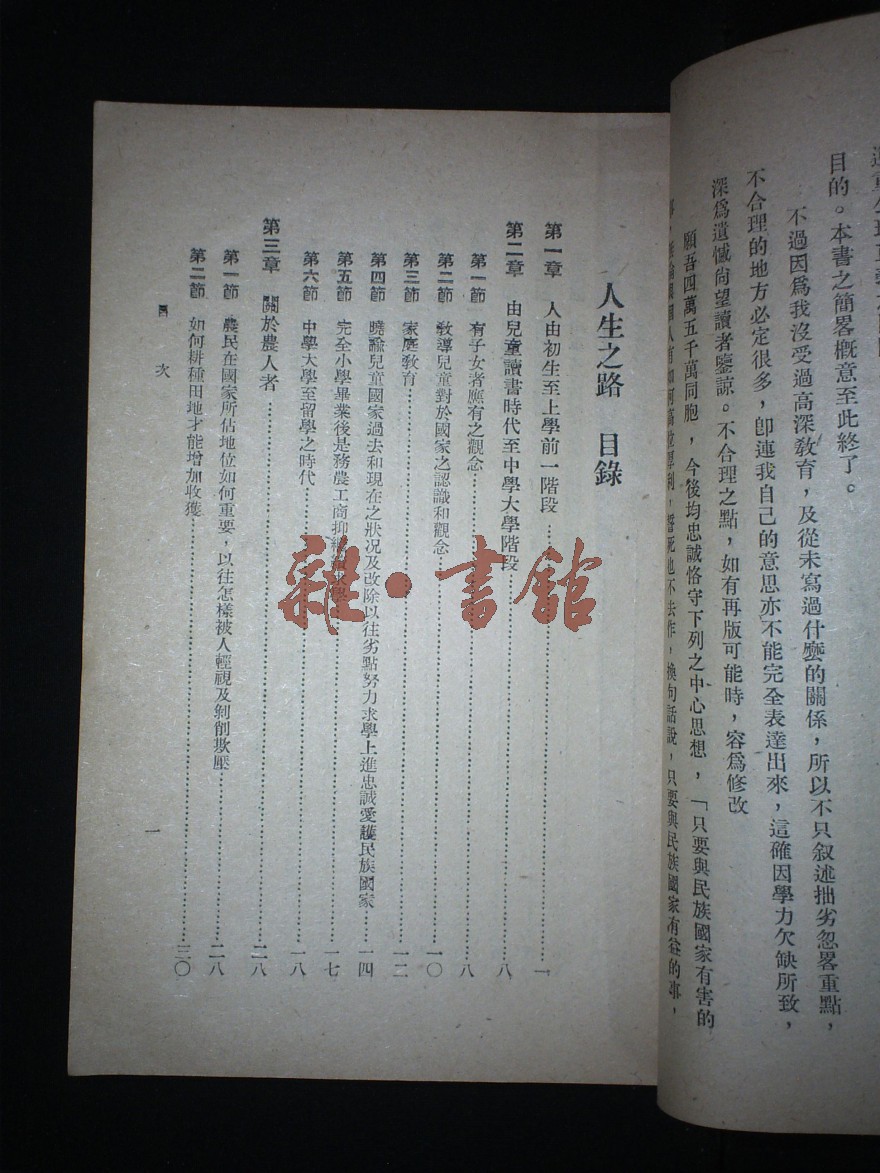 目的。本書之簡畧概意至此終了。
不過因爲我沒受過高深敎育，及從未寫過什麼的關係，所以不只叙述拙劣忽畧重點，
不合理的地方必定很多，卽連我自己的意思亦不能完全表達出來，這確因學力欠缺所致，
深爲遺憾尙望讀者鑒諒。不合理之點，如有再版可能時，容爲修改
願吾四萬五千萬同胞，今後均忠誠恪守下列之中心思想，「只要與民族國家有害的
如何高位厚利，誓死也不去作，換句話說，只要與民族國家有益的事，
人生之路　目錄
第一章　人由初生至上學前一階段……一
第二章　由兒童讀書時代至中學大學階段……八
第一節　有子女者應有之觀念……八
第二節　敎導兒童對於國家之認識和觀念……一〇
第三節　家庭敎育……一二
第四節　曉諭兒童國家過去和現在之狀况及改除以往劣點努力求學上進忠誠愛護民族國家……一四
第五節　完全小學畢業後是務農工商抑繼續求學……一七
第六節　中學大學至留學之時代……一八
第三章　關於農人者……二八
第一節　農民在國家所佔地位如何重要，以往怎樣被人輕視及剝削欺壓……二八
第二節　如何耕種田地才能增加收獲……三〇
目　次
一
雜·書館